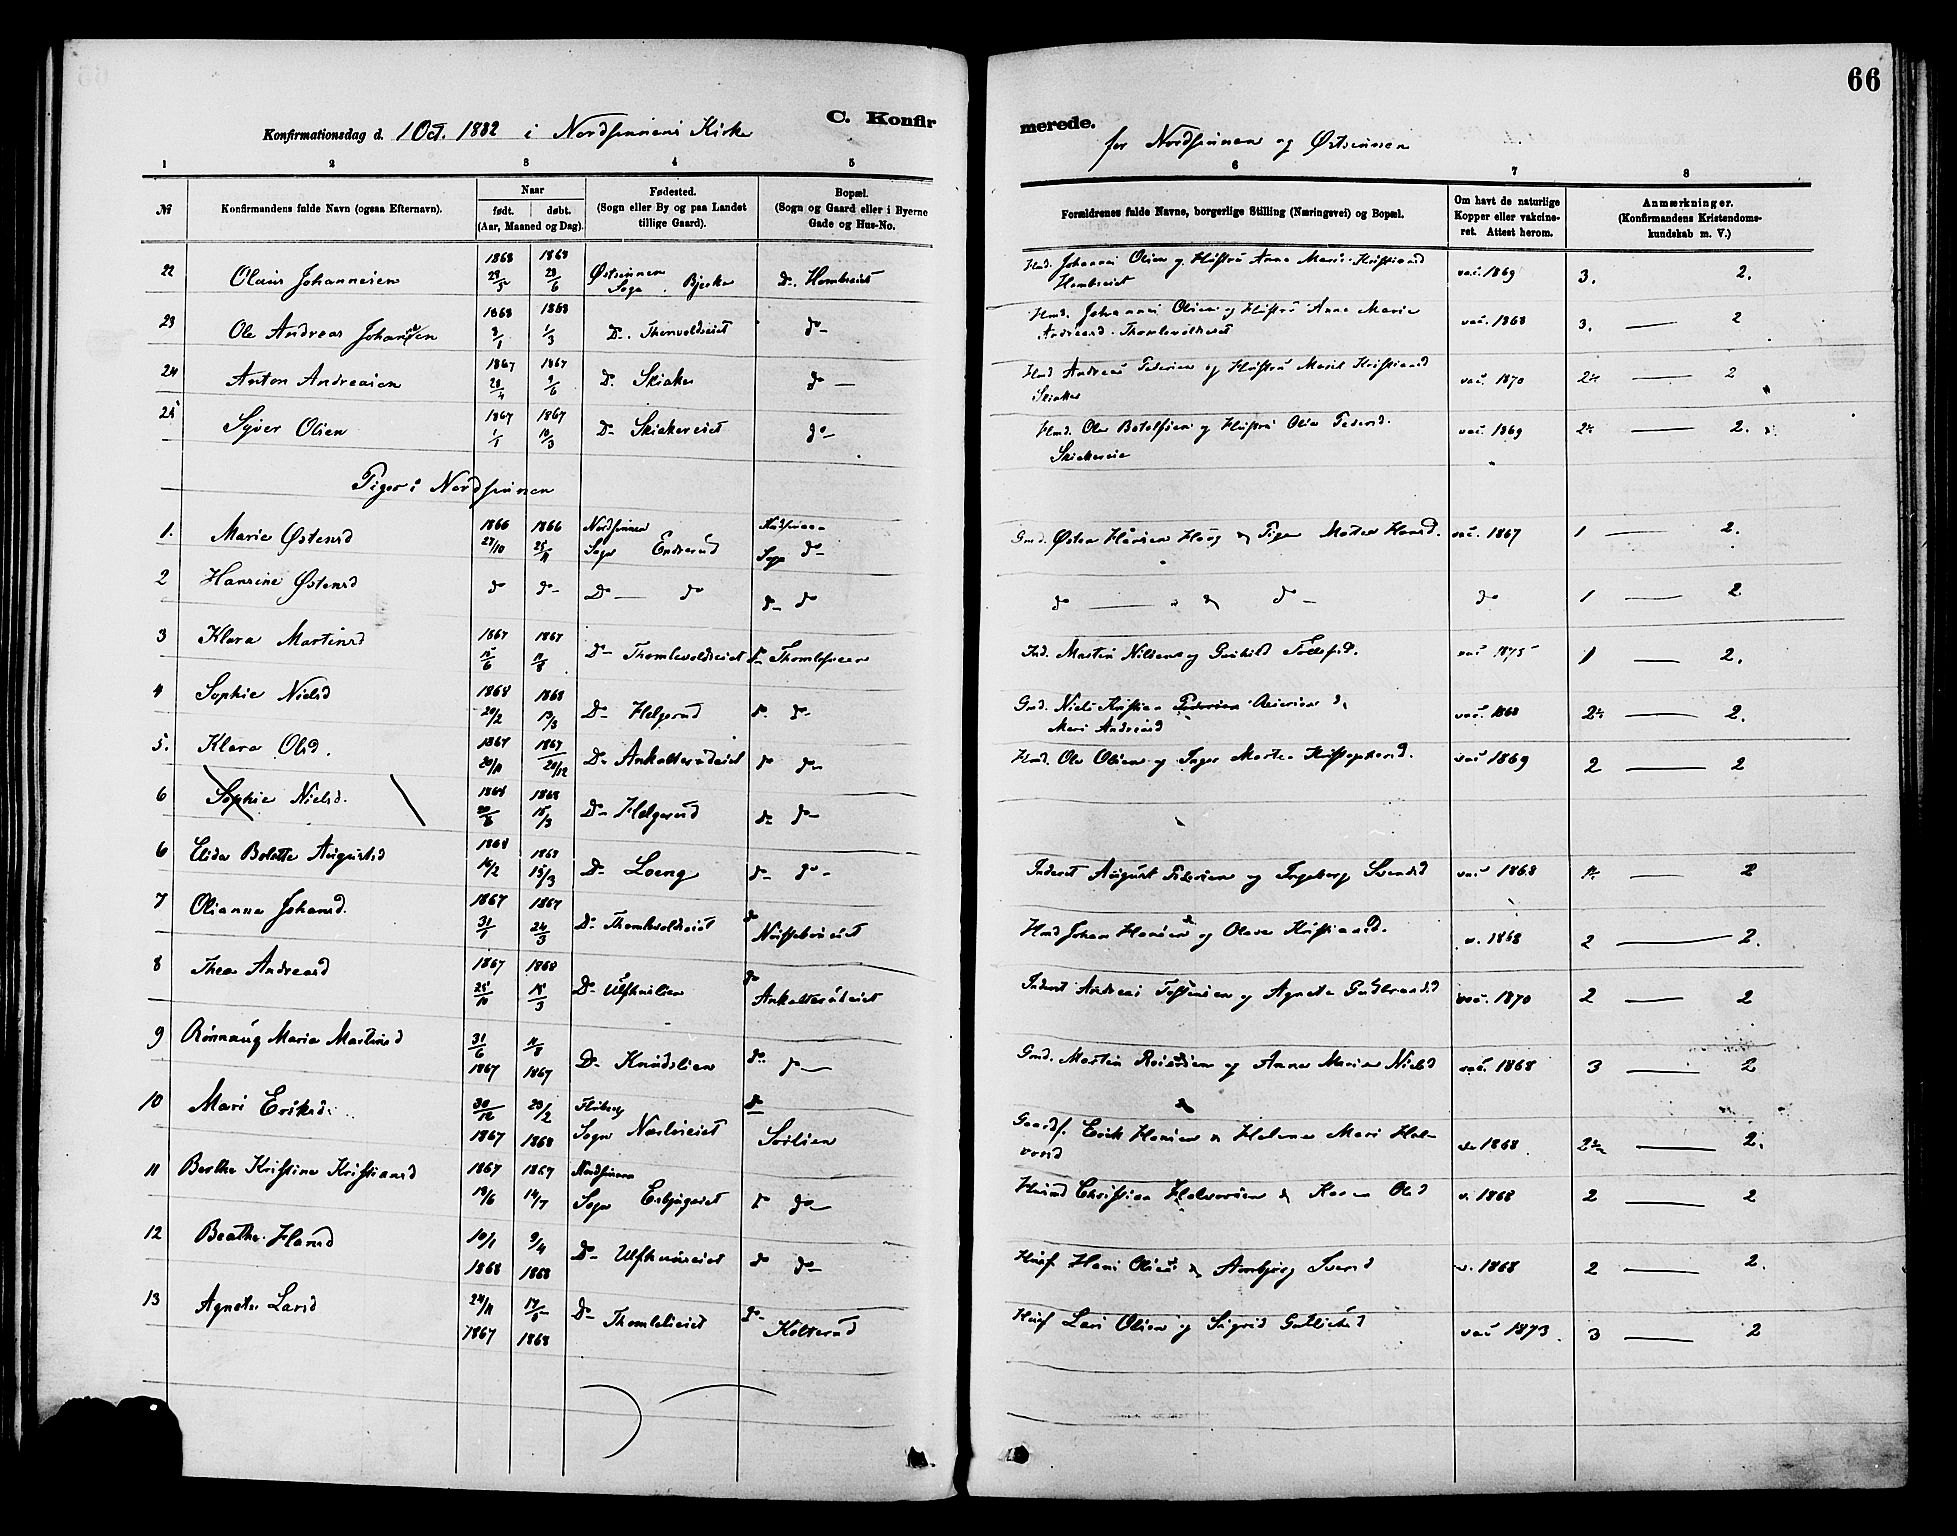 66
C. Konfir
merede.
Konfirmationsdag d. 1 Oct. 1882 i Nordsinnens Kirke
for Nordsinnen og Østsinnen
1 2 3 4 5 6 7 8
№
Konfirmandens fulde Navn (ogsaa Efternavn).
Naar
født. døbt.
(Aar, Maaned og Dag).
Fødested.
(Sogn eller By og paa Landet
tillige Gaard).
Bopæl.
(Sogn og Gaard eller i Byerne
Gade og Hus-No.
Forældrenes fulde Navne, borgerlige Stilling (Næringsvei) og Bopæl.
Om havt de naturlige
Kopper eller vakcine-
ret. Attest herom.
Anmærkninger.
(Konfirmandens Kristendoms-
kundskab m. V.)
22 Olaus Johannesen 1868 29/5 1868 28/6 Østsinnen Sogn D. Hombreiet Hmd. Johannes Olsen og Hustru Anne Marie Kristiansd Hombreiet vac. 1869 3. 2.
23 Ole Andreas Johansen 1868 2/1 1868 1/3 D. Thonvoldseiet do Hmd. Johannes Olsen og Hustru Anne Marie Andreasd. Thomlevoldseiet vac. 1868 3. — 2
24 Anton Andreasen 1867 28/4 1867 9/6 D. Skiaker do — Hmd Andreas Pedersen og Hustru Marit Kristiansd Skiaker vac. 1870 — 2
25 Syver Olsen 1867 1/1 1867 10/3 D. Skiakereiet do — Hmd. Ole Botolfsen og Hustru Olea Pedersd. Skiakereie vac. 1869 — 2.
Piger i Nordsinnen
1. Marie Østensd 1866 27/10 1866 25/11 Nordsinnen Sogn Enderud Nordsinnen Sogn do Gmd. Østen Hansen Haug og Pige Marthe Hansd. vac. 1867 1 — 2.
2 Hansine Østensd do do D — do do do do — og do — do 1 — 2
3 Klara Martinsd 1867 15/6 1867 11/8 D — Thomlevoldseiet Ind. Martin Nilsen og Gunhild Tollefsd. vac 1875 1 — 2.
4 Sophie Nielsd 1868 20/2 1868 15/3 D — Helgerud do do Gmd. Niels Kristian Pedersen Reiersen og Mari Andreasd vac. 1868 — 2.
5. Klara Olsd. 1867 20/11 1867 26/12 D — Ankolterudeiet do do — Hmd. Ole Olsen og Inger Marthea Kristophersd. vac 1869 2 — 2
6 Sophie Nielsd. 1868 1868 15/3 D — Helgerud do do —
6 Elida Bolette Augustsd 1868 16/2 1868 15/3 D — Loeng do do — Inderst August Pedersen og Ingeborg Svendsd vac 1868 — 2
7 Olianna Johansd. 1867 31/1 1867 24/3 D — Thomlevoldseiet do Hmd Johan Hansen og Olava Kristiansd. v. 1868 2 — 2.
8 Thea Andreasd 1867 25/10 1868 15/3 D — Ulfsmlien do Ankolterudeiet Inderst Andreas Tostensen og Agnete Gulbrandsd vac. 1870 2 — 2
9 Rønnaug Maria Martinsd 31/6 1867 11/8 1867 D — Knudslien do do — Gmd. Martin Reiersen og Anne Maria Nielsd vac. 1868 3 — 2
10 Mari Eriksd. 30/12 1867 23/2 1868 Fluberg Sogn Næslieiet do Sørlien Gaardf. Erik Hansen og Helene Mari Halvorsd v. 1868 — 2.
11 Berthe Kristine Kristiansd 1867 19/6 1867 14/7 Nordsinnen Sogn Do do — Husmd Christian Halvorsen og Karen Olsd v. 1868 2 — 2
12 Beathe Hansd 10/1 1868 9/4 1868 D — do do — Husf Hans Olsen og Annbjørg Iversd v. 1868 2 — 2.
13 Agnethe Larsd 24/11 1867 17/5 1868 D — Thomlelieiet do Kolterud Husf Lars Olsen og Sigrid vac 1873. 3 — 2